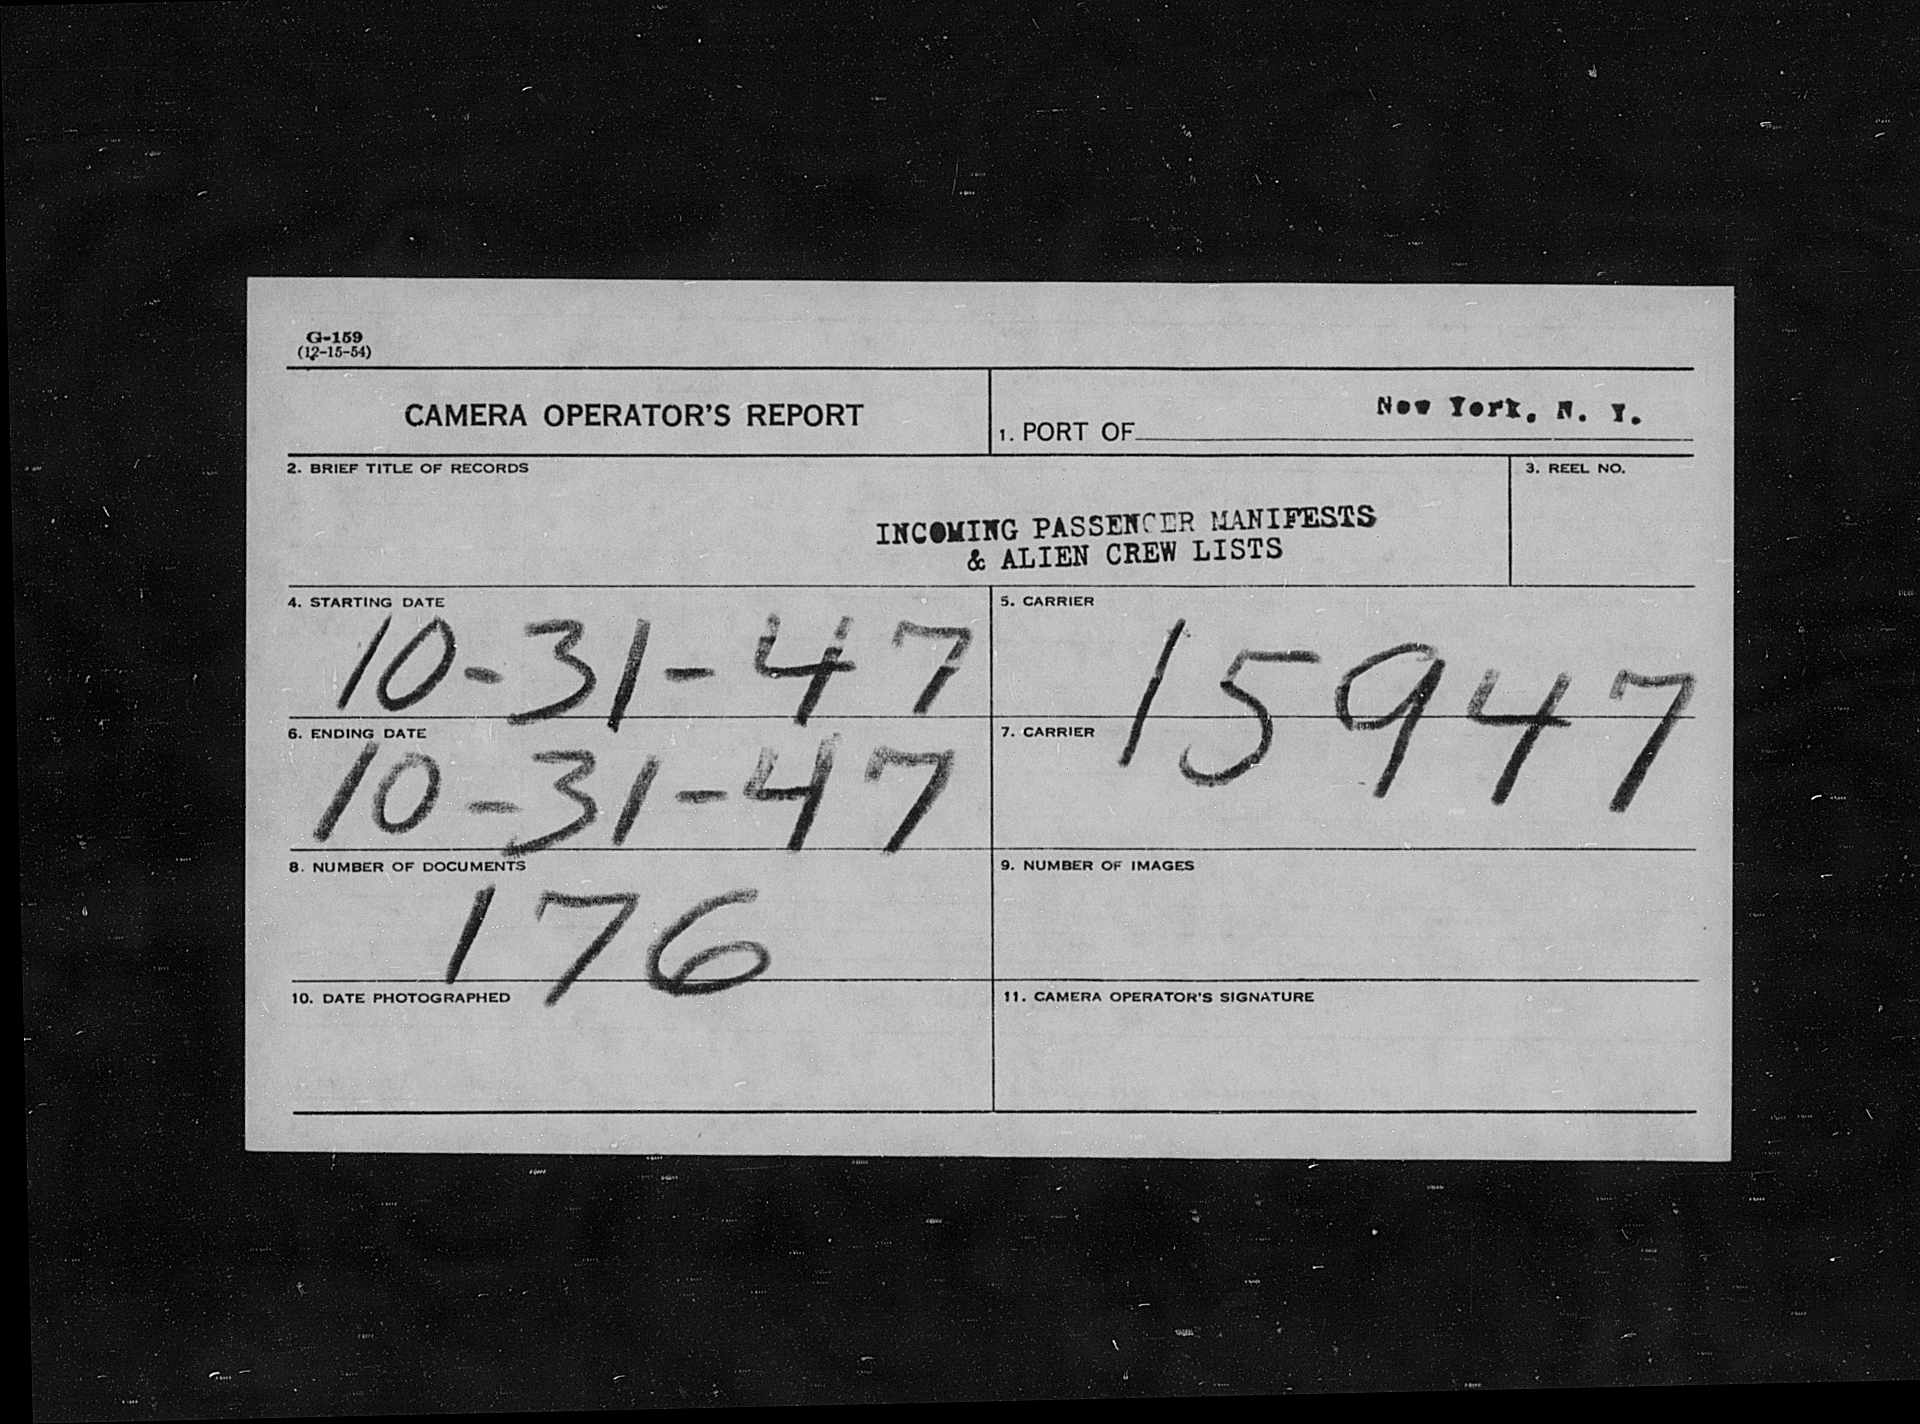 G-159
(12-15-54)
CAMERA OPERATOR'S REPORT
1. PORT OF New York, N. Y.
2. BRIEF TITLE OF RECORDS
INCOMING PASSENGER MANIFESTS
& ALIEN CREW LISTS
3. REEL NO.
4. STARTING DATE
10-31-47
5. CARRIER
15947
6. ENDING DATE
10-31-47
7. CARRIER
8. NUMBER OF DOCUMENTS
176
9. NUMBER OF IMAGES
10. DATE PHOTOGRAPHED
11. CAMERA OPERATOR'S SIGNATURE